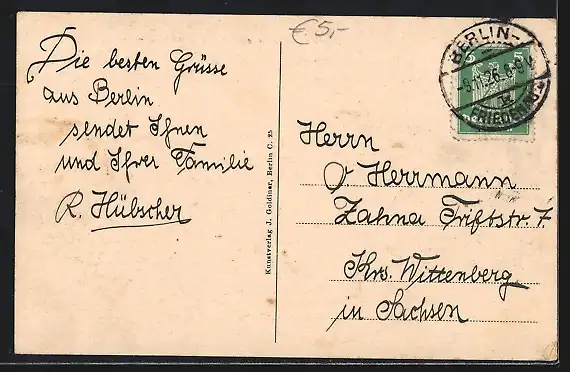 €5,-
Die besten Grüsse
aus Berlin
sendet Ihnen
und Ihrer Familie
R. Hübscher
Kunstverlag J. Goldiner, Berlin C. 25
BERLIN-
FRIEDENAU
5
Herrn
O Herrmann
Zahna Triftstr. 7
Krs. Wittenberg
in Sachsen